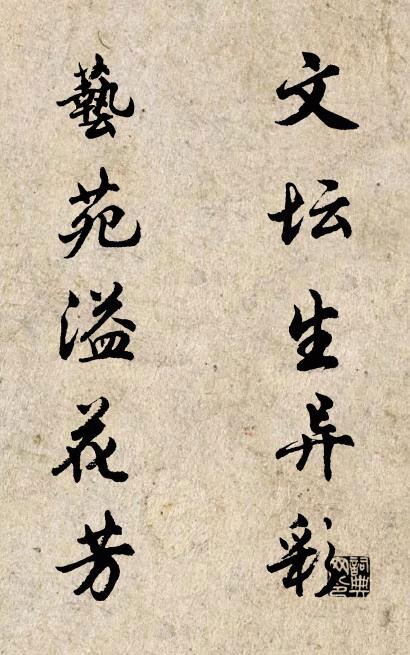 文坛生异彩
藝苑溢花芳